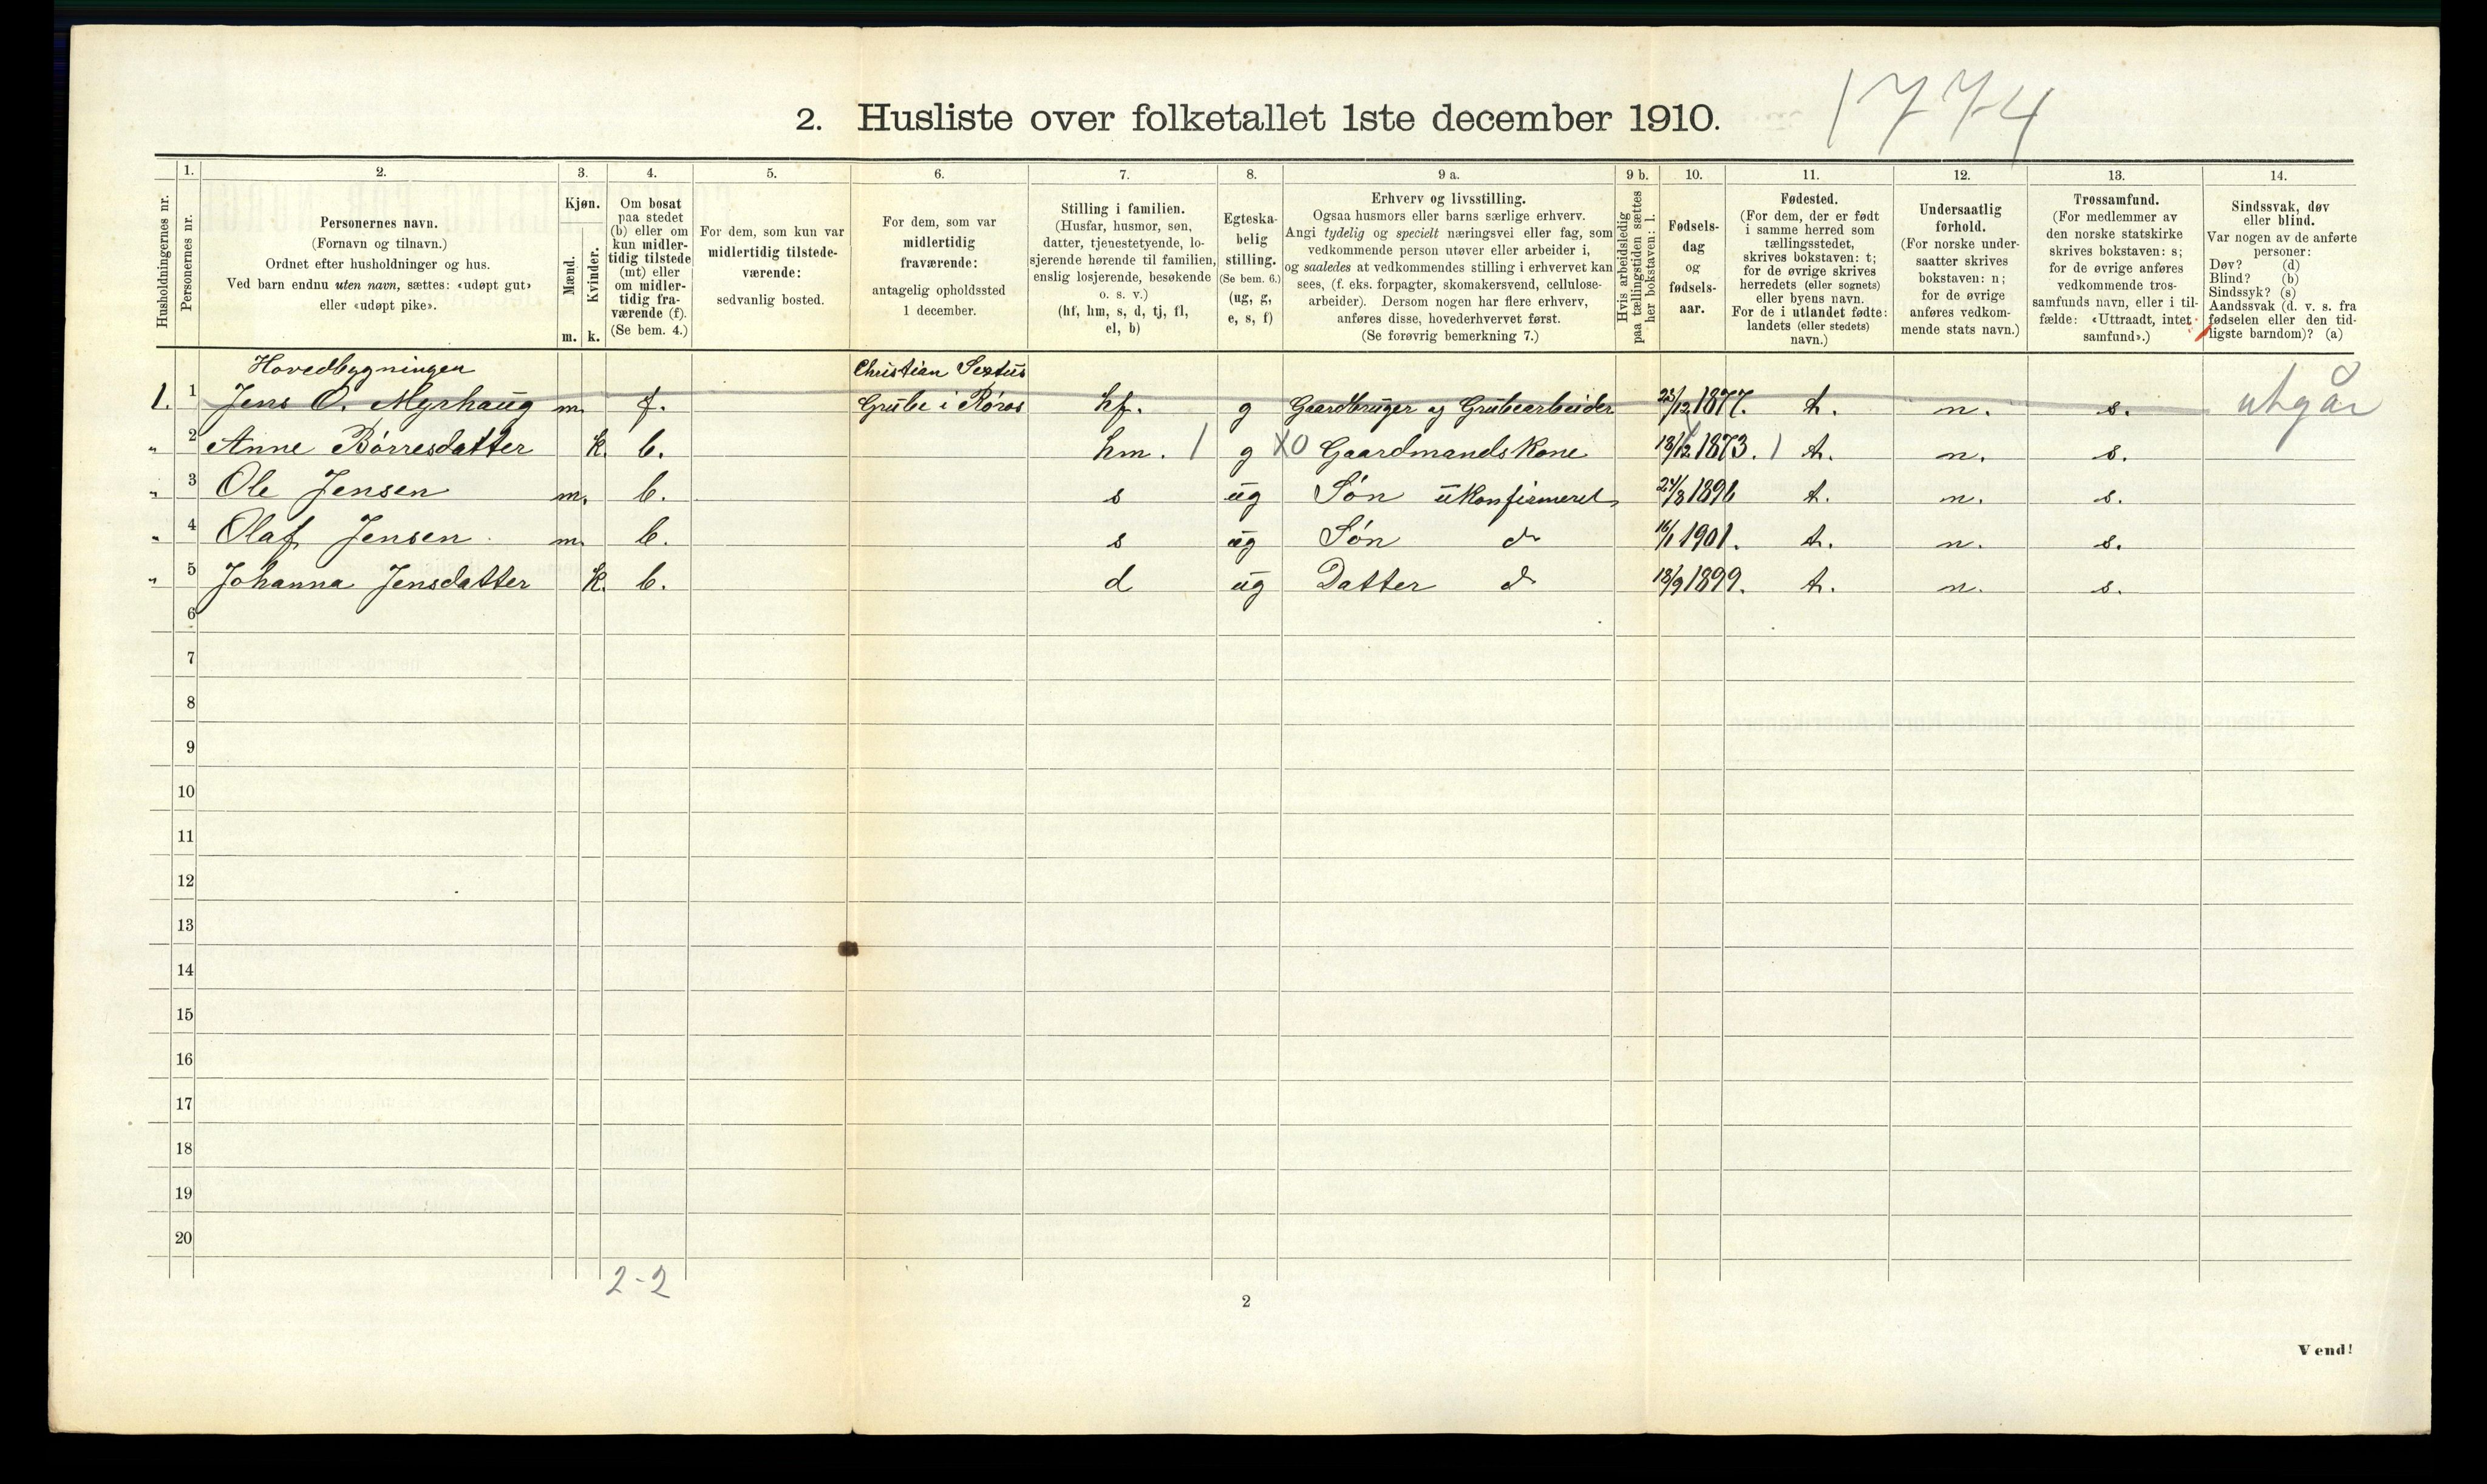 2. Husliste over folketallet 1ste december 1910.
1774
Husholdningernes nr.
1.
Personernes nr.
2.
Personernes navn.
(Fornavn og tilnavn.)
Ordnet efter husholdninger og hus.
Ved barn endnu uten navn, sættes: «udøpt gut»
eller «udøpt pike».
3.
Kjøn.
Mænd.
Kvinder.
m. k.
4.
Om bosat
paa stedet
(b) eller om
kun midler-
tidig tilstede
(mt) eller
om midler-
tidig fra-
værende (f).
(Se bem. 4.)
5.
For dem, som kun var
midlertidig tilstede-
værende:
sedvanlig bosted.
6.
For dem, som var
midlertidig
fraværende:
antagelig opholdssted
1 december.
7.
Stilling i familien.
(Husfar, husmor, søn,
datter, tjenestetyende, lo-
sjerende hørende til familien,
enslig losjerende, besøkende
o. s. v.)
(hf, hm, s, d, tj, fl,
el, b)
8.
Egteska-
belig
stilling.
(Se bem. 6.)
(ug, g,
e, s, f)
9 a.
Erhverv og livsstilling.
Ogsaa husmors eller barns særlige erhverv.
Angi tydelig og specielt næringsvei eller fag, som
vedkommende person utøver eller arbeider i,
og saaledes at vedkommendes stilling i erhvervet kan
sees, (f. eks. forpagter, skomakersvend, cellulose-
arbeider). Dersom nogen har flere erhverv,
anføres disse, hovederhvervet først.
(Se forøvrig bemerkning 7.)
9 b.
Hvis arbeidsledig
paa tællingstiden sættes
her bokstaven: l.
10.
Fødsels-
dag
og
fødsels-
aar.
11.
Fødested.
(For dem, der er født
i samme herred som
tællingsstedet,
skrives bokstaven: t;
for de øvrige skrives
herredets (eller sognets)
eller byens navn.
For de i utlandet fødte:
landets (eller stedets)
navn.)
12.
Undersaatlig
forhold.
(For norske under-
saatter skrives
bokstaven: n;
for de øvrige
anføres vedkom-
mende stats navn.)
13.
Trossamfund.
(For medlemmer av
den norske statskirke
skrives bokstaven: s;
for de øvrige anføres
vedkommende tros-
samfunds navn, eller i til-
fælde: «Uttraadt, intet
samfund».)
14.
Sindssvak, døv
eller blind.
Var nogen av de anførte
personer:
Døv? (d)
Blind? (b)
Sindssyk? (s)
Aandssvak (d. v. s. fra
fødselen eller den tid-
ligste barndom)? (a)
Hovedbygningen Christian Sextus
1. 1 Jens O. Myrhaug m. f. Grube i Røros hf. g Gaardbruger og Grubearbeider 23/12 1877. t. n. s. utgår
" 2 Anne Børresdatter k. b. hm. 1 g X0 Gaardmandskone 13/12 1873. 1 t. n. s.
" 3 Ole Jensen m. b. s ug Søn ukonfirmeret 24/8 1896 t. n. s.
" 4 Olaf Jensen m. b. s ug Søn do 16/1 1901. t. n. s.
" 5 Johanna Jensdatter k. b. d ug Datter do 13/9 1899. t. n. s.
6
7
8
9
10
11
12
13
14
15
16
17
18
19
20
2-2
2
Vend!